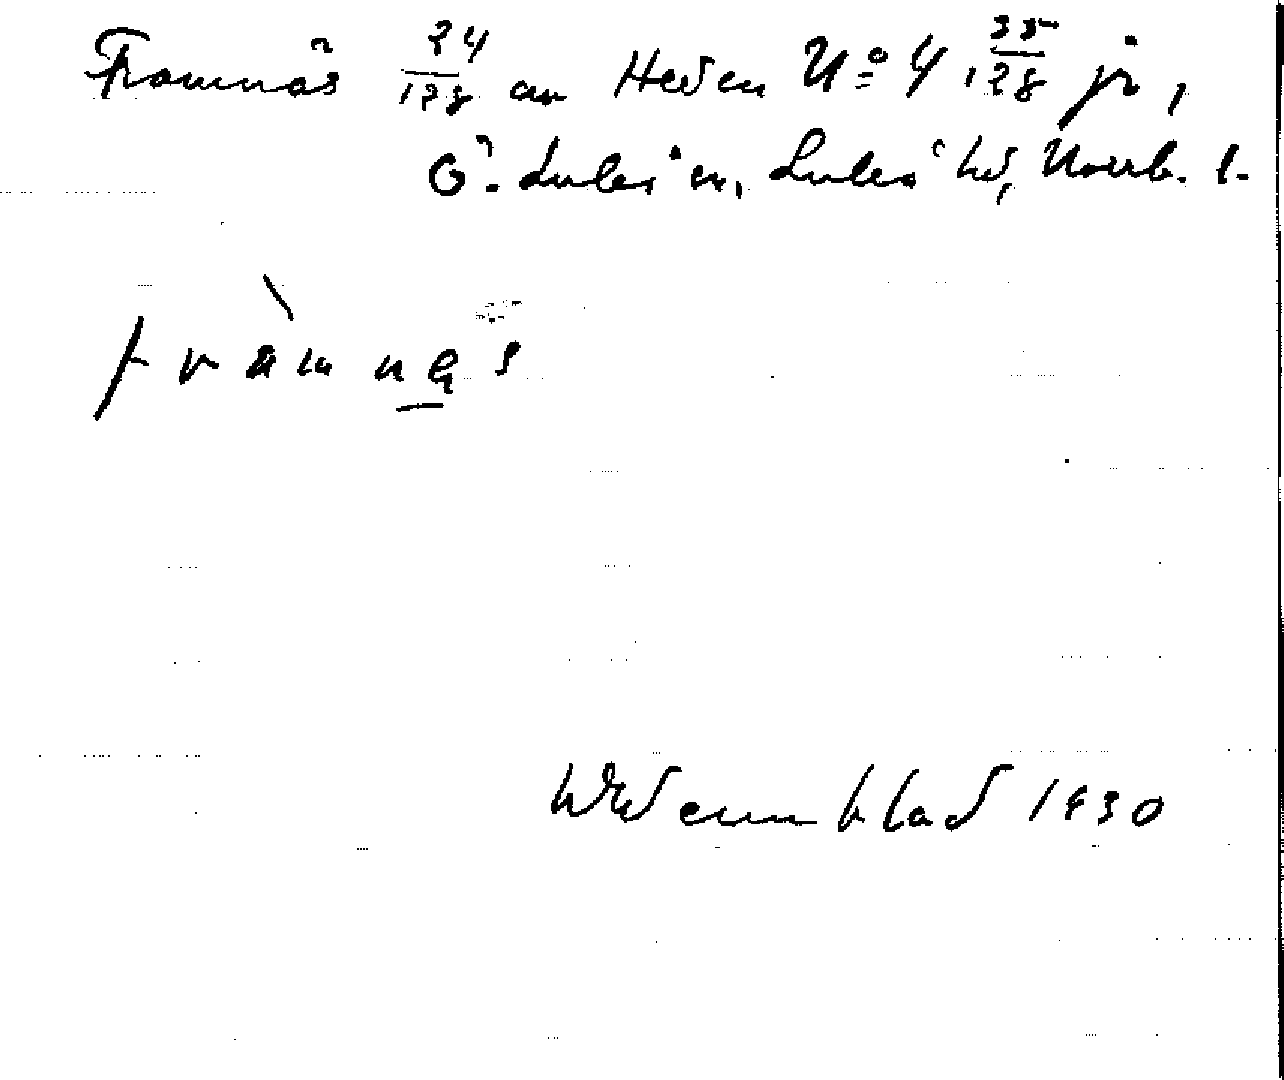 Framnäs 24/128 av Heden No 4 35/128 jr,
Ö. Luleå sn, Luleå hd, Norrb. l.
fràmnęs
Widenmblad 1930